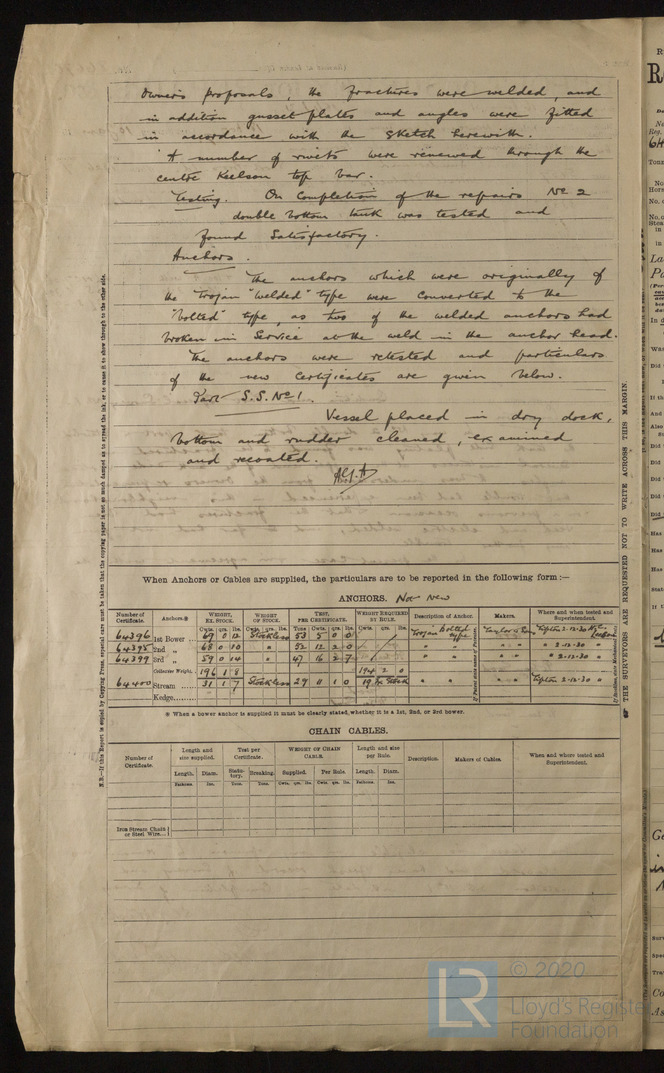 Owner's proposals, the fractures were welded, and
in addition gusset plates and angles were fitted
in accordance with the sketch herewith.
A number of rivets were renewed through the
centre keelson top bar.
Testing. On completion of the repairs No 2
double bottom tank was tested and
found satisfactory.
Anchors.
The anchors which were originally of
the Trojan "welded" type were converted to the
"bolted" type, as two of the welded anchors had
broken in service at the weld in the anchor head.
The anchors were retested and particulars
of the new certificates are given below.
Part S.S. No 1.
Vessel placed in dry dock,
bottom and rudder cleaned, examined
and recoated.
N.B.—If this Report is copied by Copying Press, especial care must be taken that the copying paper is not so much damped as to spread the ink, or to cause it to show through to the other side.
THE SURVEYORS ARE REQUESTED NOT TO WRITE ACROSS THIS MARGIN.
When Anchors or Cables are supplied, the particulars are to be reported in the following form :—
ANCHORS. Not New
Number of Certificate. Anchors.* WEIGHT, EX. STOCK. WEIGHT OF STOCK. TEST, PER CERTIFICATE. WEIGHT REQUIRED BY RULE. Description of Anchor. Makers. Where and when tested and Superintendent.
Cwts. qrs. lbs. Cwts. qrs. lbs. Tons Cwts. qrs. lbs. Cwts. qrs. lbs.
64396 1st Bower ... 69 0 12 Stockless 53 5 0 0 Trojan bolted type Tipton 2-12-30
64398 2nd „ 68 0 10 " 52 12 2 0 " " " " " 2-12-30 "
64399 3rd „ 59 0 14 " 47 16 2 7 " " " " " 2-12-30 "
Collective Weight. 196 1 8 194 2 0
64400 Stream ... 31 1 7 Stockless 29 0 1 0 " " " " Tipton 2-12-30 "
Kedge.........
* When a bower anchor is supplied it must be clearly stated, whether it is a 1st, 2nd, or 3rd bower.
CHAIN CABLES.
Number of Certificate. Length and size supplied. Test per Certificate. WEIGHT OF CHAIN CABLE. Length and size per Rule. Description. Makers of Cables. When and where tested and Superintendent.
Length. Diam. Statutory. Breaking. Supplied. Per Rule. Length. Diam.
Fathoms. Ins. Tons. Tons. Cwts. qrs. lbs. Cwts. qrs. lbs. Fathoms. Ins.
Iron Stream Chain or Steel Wire...
LR
© 2020
Lloyd's Register
Foundation